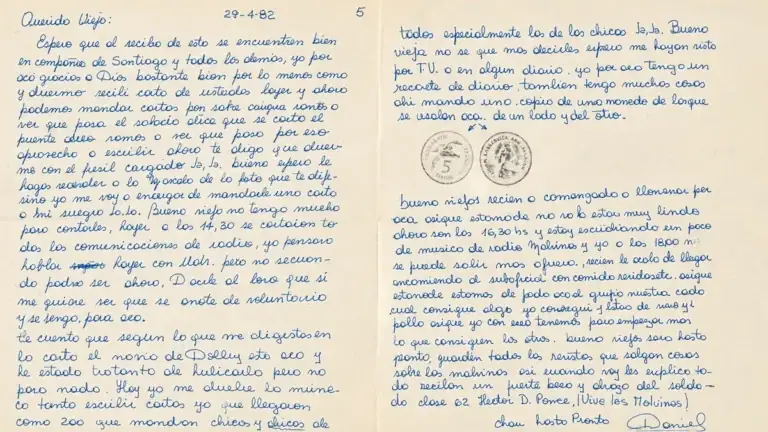 Querido Viejo: 29-4-82 5
Espero que al recibo de esto se encuentren bien
en compañía de Santiago y todos los demas, yo por
acá gracias a Dios bastante bien por lo menos como
y duermo recibí carta de ustedes layer y ahora
podemos mandar cartas por sobre vamos a
ver que pasa el dice que se corto el
puente aereo vamos a ver que pasa por eso
aprovecho a escribir ahora te digo que duer-
mo con el fusil cargado Ja, Ja. bueno espero le
hagas recordar a lo Marcela de la foto que te dije
sino yo me voy a encargar de mandarle una carta
a mi suegro Ja.Ja. Bueno viejo no tengo mucho
para contarles, hayer a las 14,30 se cortaron to-
das las comunicaciones de radio, yo pensaba
hablar hayer con Uds. pero no se cuan-
do podra ser ahora, Decile al loro que si
me quiere ver que se anote de voluntario
y se venga, para aca.
Te cuento que segun lo que me digistes en
la carta el novio de Dolly esta aca y
he estado tratando de hubicarlo pero no
paso nada. Hoy ya me duele la muñe-
ca tanto escribir cartas ya que llegaron
como 200 que mandan chicas y chicos de
todos especialmente las de las chicas Ja,Ja. Bueno
vieja no se que mas decirles espero me hayan visto
por T.V. o en algun diario. yo por aca tengo un
recorte de diario. tambien tengo muchas cosas
ahi mando una copia de una moneda de las que
se usaban aca. de un lado y del otro.
5
bueno viejos recien a comenzado a lloverar por
aca. asique estamos de no va lo estas muy lindo
ahora son las 16,30 hs y estoy escuchando un poco
de musica de radio Malvinas y ya a las 18,00 no
se puede salir mas afuera, recien le acabo de llegar
encomienda al suboficial con comida asique
estamos de podo aca el grupo nuestro cada
cual consigue algo yo consegui y
pollo asique ya con eso tenemos para empezar mas
lo que consiguen los otros. bueno viejos sera hasta
pronto, guarden todas las revistas que salgan cosas
sobre las malvinas asi cuando voy les explico to-
do reciban un fuerte beso y abrazo del solda-
do clase 62 Hector D. Ponce, ¡Viva las Malvinas!
chau hasta Pronto Daniel